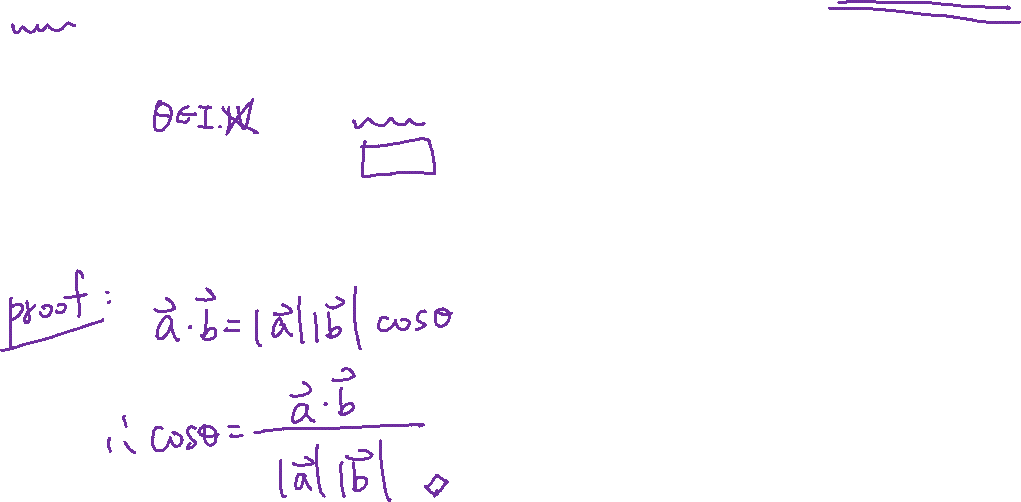 θ∈I.
proof: a⃗·b⃗=|a⃗||b⃗| cosθ
∴ cosθ= a⃗·b⃗ / |a⃗||b⃗| ◇